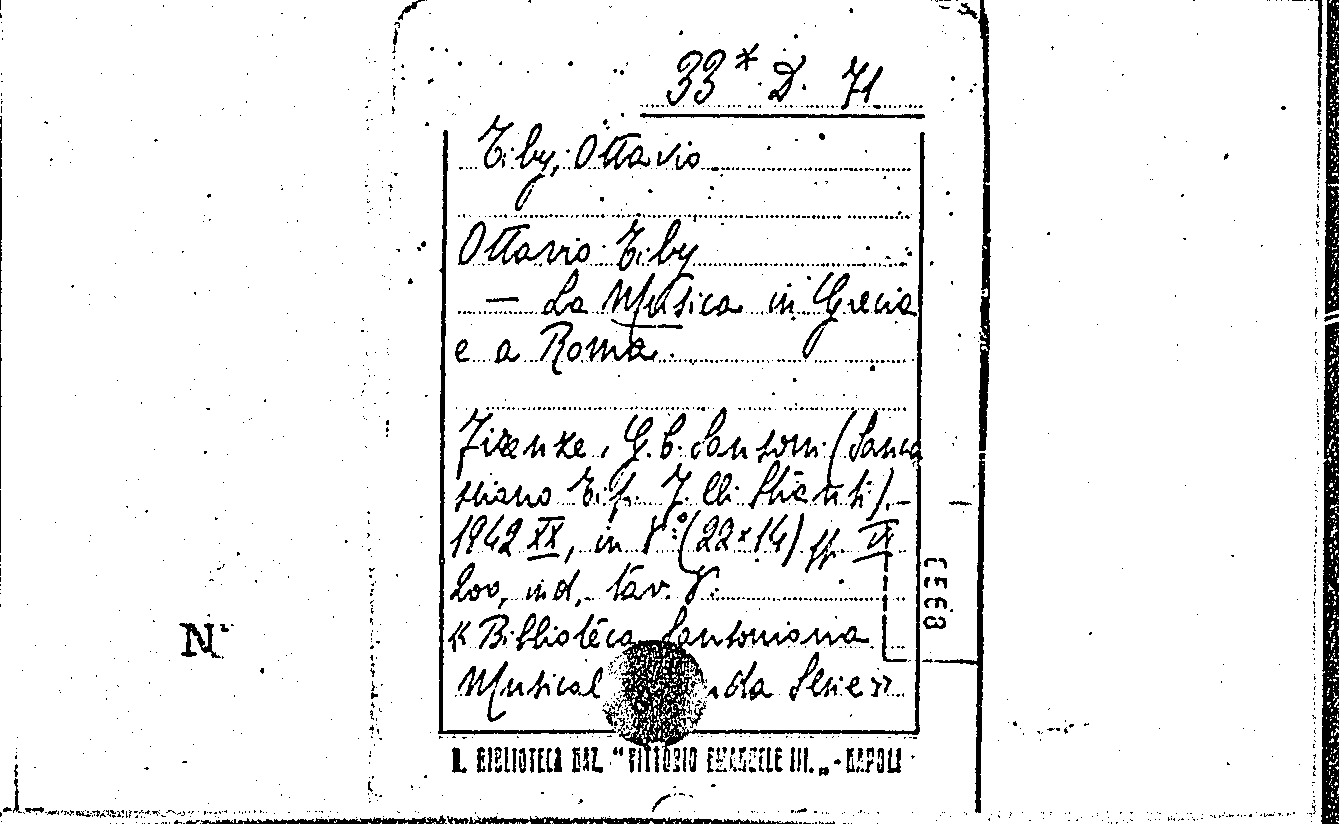 33* D. 71
Tiby, Ottavio
Ottavio Tiby
— La Musica in Grecia
e a Roma.
Firenze, G. B. Santoni (Sanca
sciano Tip. F.lli Stianti). -
1942 XX, in 8.° (22×14) pp. IX
200, ind, tav. 8.
« Biblioteca Santoniana
Musical da Serie »
R. BIBLIOTECA NAZ. "VITTORIO EMANUELE III." - NAPOLI
N°